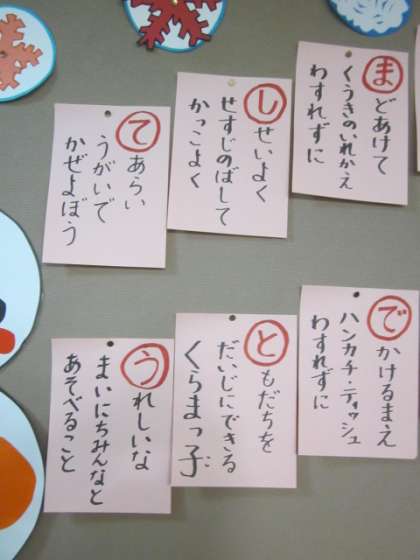 まどあけて
くうきのいれかえ
わすれずに
しせいよく
せすじのばして
かっこよく
てあらい
うがいで
かぜよぼう
でかけるまえ
ハンカチ・ティッシュ
わすれずに
ともだちを
だいじにできる
くらまっ子
こ
うれしいな
まいにちみんなと
あそべること